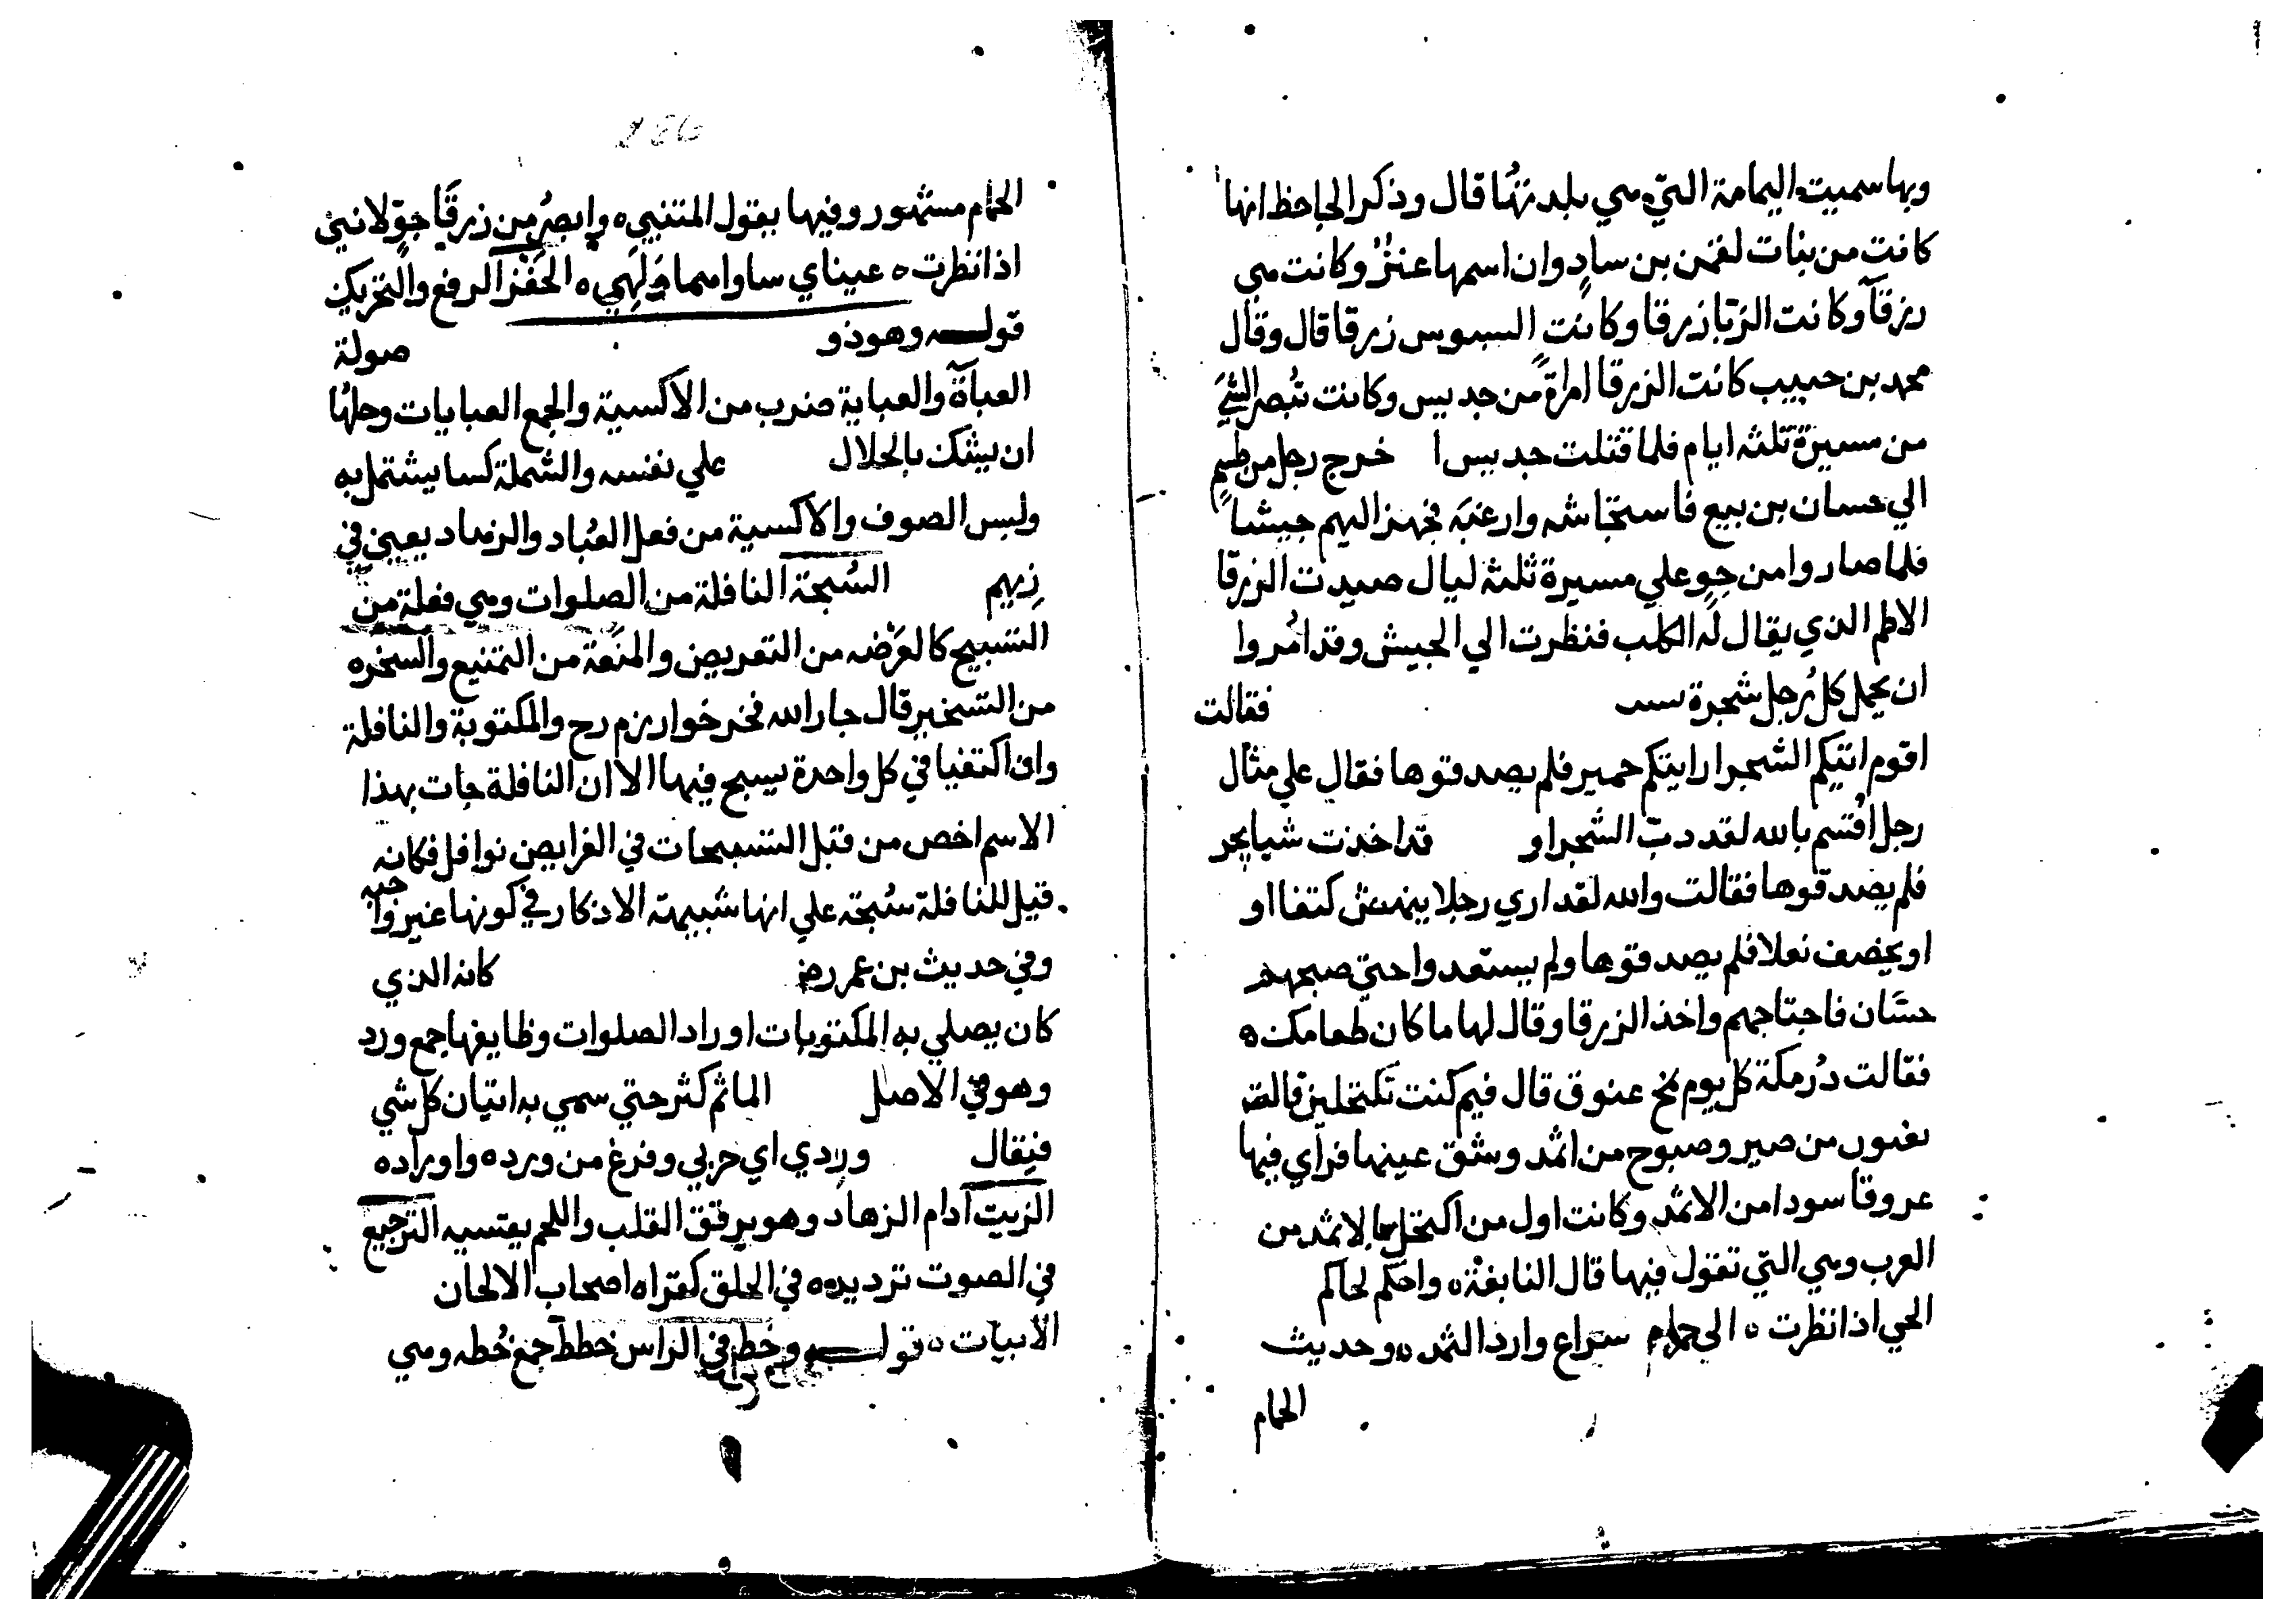 وبها سميت اليمامة التي هي بلدتها قال وذكر الجاحظ انها
كانت من بنات لقمن بن ساد وان اسمها عنز وكانت هي
رزقا وكانت الزبا زرقا وكانت السبوس زرقا قال وقال
محمد بن حبيب كانت الزرقا امراة من جديس وكانت تبصر الشي
من مسيرة ثلثة ايام فلما قتلت جديس ا خرج رجل من طسم
الي حسان بن تبع فاستجاشه وارغبه فجهز اليهم جيشا
فلما صاروا من جو علي مسيرة ثلثة ليال صعدت الزرقا
الاطم الذي يقال له الكلب فنظرت الي الجيش وقد امروا
ان يحمل كل رجل شجرة فقالت
اقوم اتتكم الشجر ارايتكم حمير فلم يصدقوها فقال علي مثال
رجل اقسم بالله لقد دب الشجر او قد اخذت شيا يجر
فلم يصدقوها فقالت والله لقد اري رجلا ينهش كتفا او
او يخصف نعلا فلم يصدقوها ولم يستعدوا حتي صبحهم
حسان فاجتاحهم واخذ الزرقا وقال لها ما كان طعامك ه
فقالت درمكة كل يوم بمخ عنوق قال فبم كنت تكتحلين قالت
بغبوق من صبر وصبوح من اثمد وشق عينها فراي فيها
عروقا سودا من الاثمد وكانت اول من اكتحل بالاثمد من
العرب وهي التي تقول فيها قال النابغة ه واحكم لحاكم
الحي اذ انظرت ه الي حمام سراع وارد الثمد ه وحديث
الحمام
186
الحمام مشهور وفيها يقول المتنبي ه وابصر من زرقا جو لانني
اذا نظرت ه عيناي ساواهما ه الحفز الرفع والتحريك
قوله وهو ذو صولة
العباة والعباية ضرب من الاكسية والجمع العبايات وحلها
ان يشك بالخلال علي نفسه والشملة كسا يشتمل به
ولبس الصوف والاكسية من فعل العباد والزهاد يعني في
زيهم السبحة النافلة من الصلوات وهي فعلة من
التسبيح كالعرضه من التعريض والمنعة من التمنيع والسخره
من التسخير قال جار الله فخر خوارزم رح والمكتوبة والنافلة
وان اكتفيا في كل واحدة يسبح فيها الا ان النافلة جات بهذا
الاسم اخص من قبل التسبيحات في الفرايض نوافل فكانه
قيل للنافلة سبحة علي انها شبيهة الاذكار في كونها غير واجبه
وفي حديث بن عمر رض كانه الذي
كان يصلي به المكتوبات اوراد الصلوات وظايفها جمع ورد
وهو في الاصل الماثم كثر حتي سمي به اتيان كل شي
فيقال وردي اي حزبي وفرغ من ورده واوراده
الزيت ادام الزهاد وهو يرقق القلب واللحم يقسيه الترجيع
في الصوت ترديده في الحلق كقراه اصحاب الالحان
الابيات ه قوله وخط في الراس خطط جمع خطه وهي